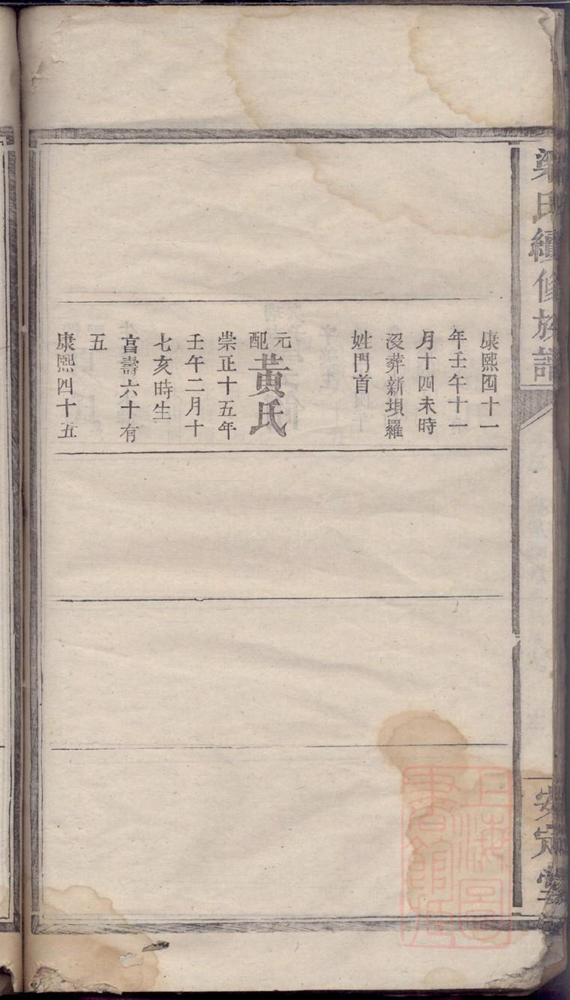 梁氏續修族譜
安定堂
康熙四十一
年壬午十一
月十四未時
沒葬新垻羅
姓門首
元配黃氏
崇正十五年
壬午二月十
七亥時生
享壽六十有
五
康熙四十五